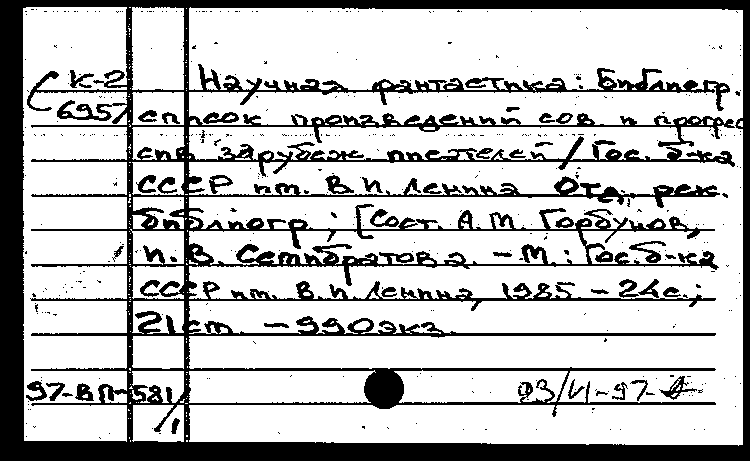 К-2 Научная фантастика: Библиогр.
6957 список произведений сов. и прогрес
сив. зарубеж. писателей / Гос. б-ка
СССР им. В.И. Ленина. Отд. рек.
библиогр.; [Сост. А.М. Горбунов,
И.В. Сетибратова. - М.: Гос. б-ка
СССР им. В.И. Ленина, 1985. - 24с.;
21 см. - 990 экз.
97-ВП-581/1 93/VI-97-